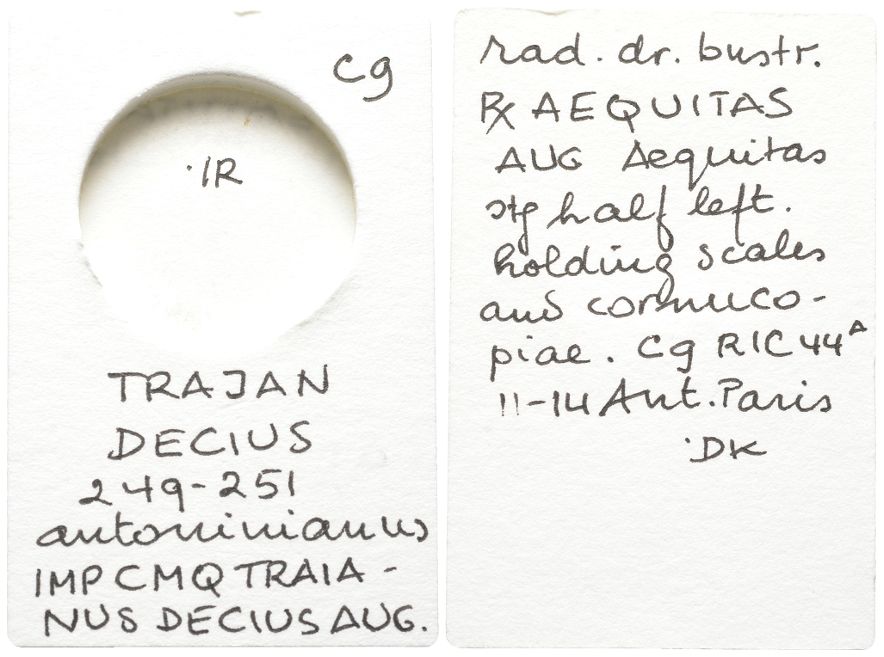 cg
·IR
TRAJAN
DECIUS
249-251
antoninianus
IMP CMQ TRAIA-
NUS DECIUS AUG.
rad. dr. bustr.
Rx AEQUITAS
AUG Aequitas
stg half left.
holding scales
and cornuco-
piae. cg RIC 44A
11-14 Ant. Paris
·DK